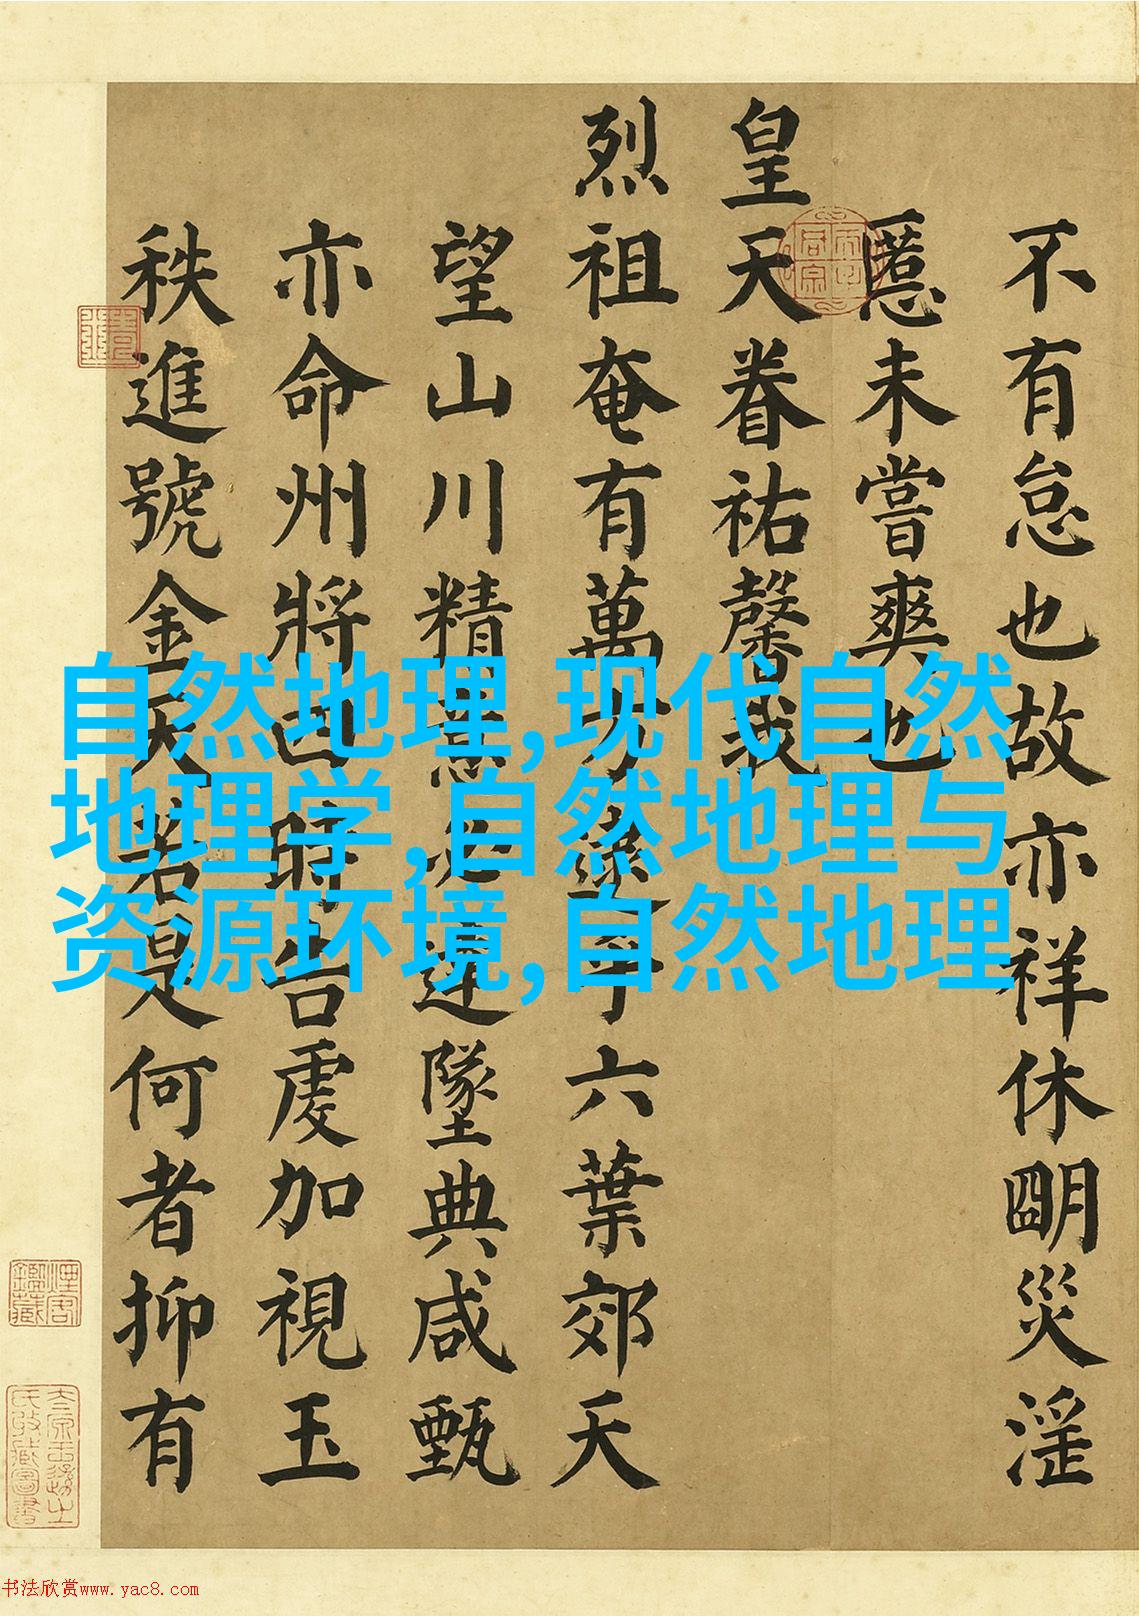 不有怠也故亦祥休朙災淫
慝未嘗爽也
皇天眷祐馨我
烈祖奄有萬方逮于六葉郊天
望山川精意必達墜典咸甄
亦命州將時告虔加視玉
秩進號金天若是何者抑有
自然地理,现代自然
地理学,自然地理与
资源环境,自然地理
书法欣赏www.yac8.com